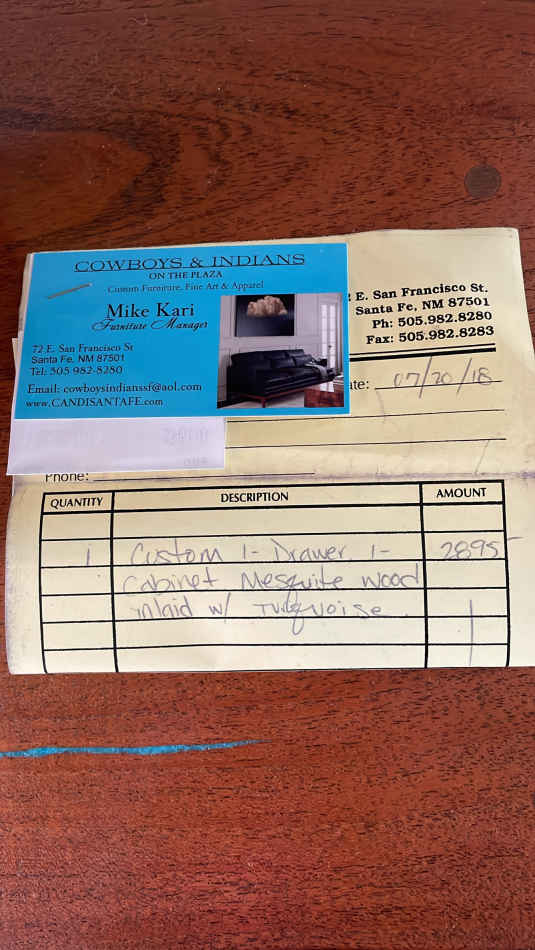 COWBOYS & INDIANS
ON THE PLAZA
Custom Furniture, Fine Art & Apparel
Mike Kari
Furniture Manager
72 E. San Francisco St
Santa Fe, NM 87501
Tel: 505 982-8280
Email: cowboysindianssf@aol.com
www.CANDISANTAFE.com
E. San Francisco St.
Santa Fe, NM 87501
Ph: 505.982.8280
Fax: 505.982.8283
ate: 07/20/18
Phone:
QUANTITY DESCRIPTION AMOUNT
1 Custom 1- Drawer 1- 2895-
Cabinet Mesquite Wood
inlaid w/ Turquoise